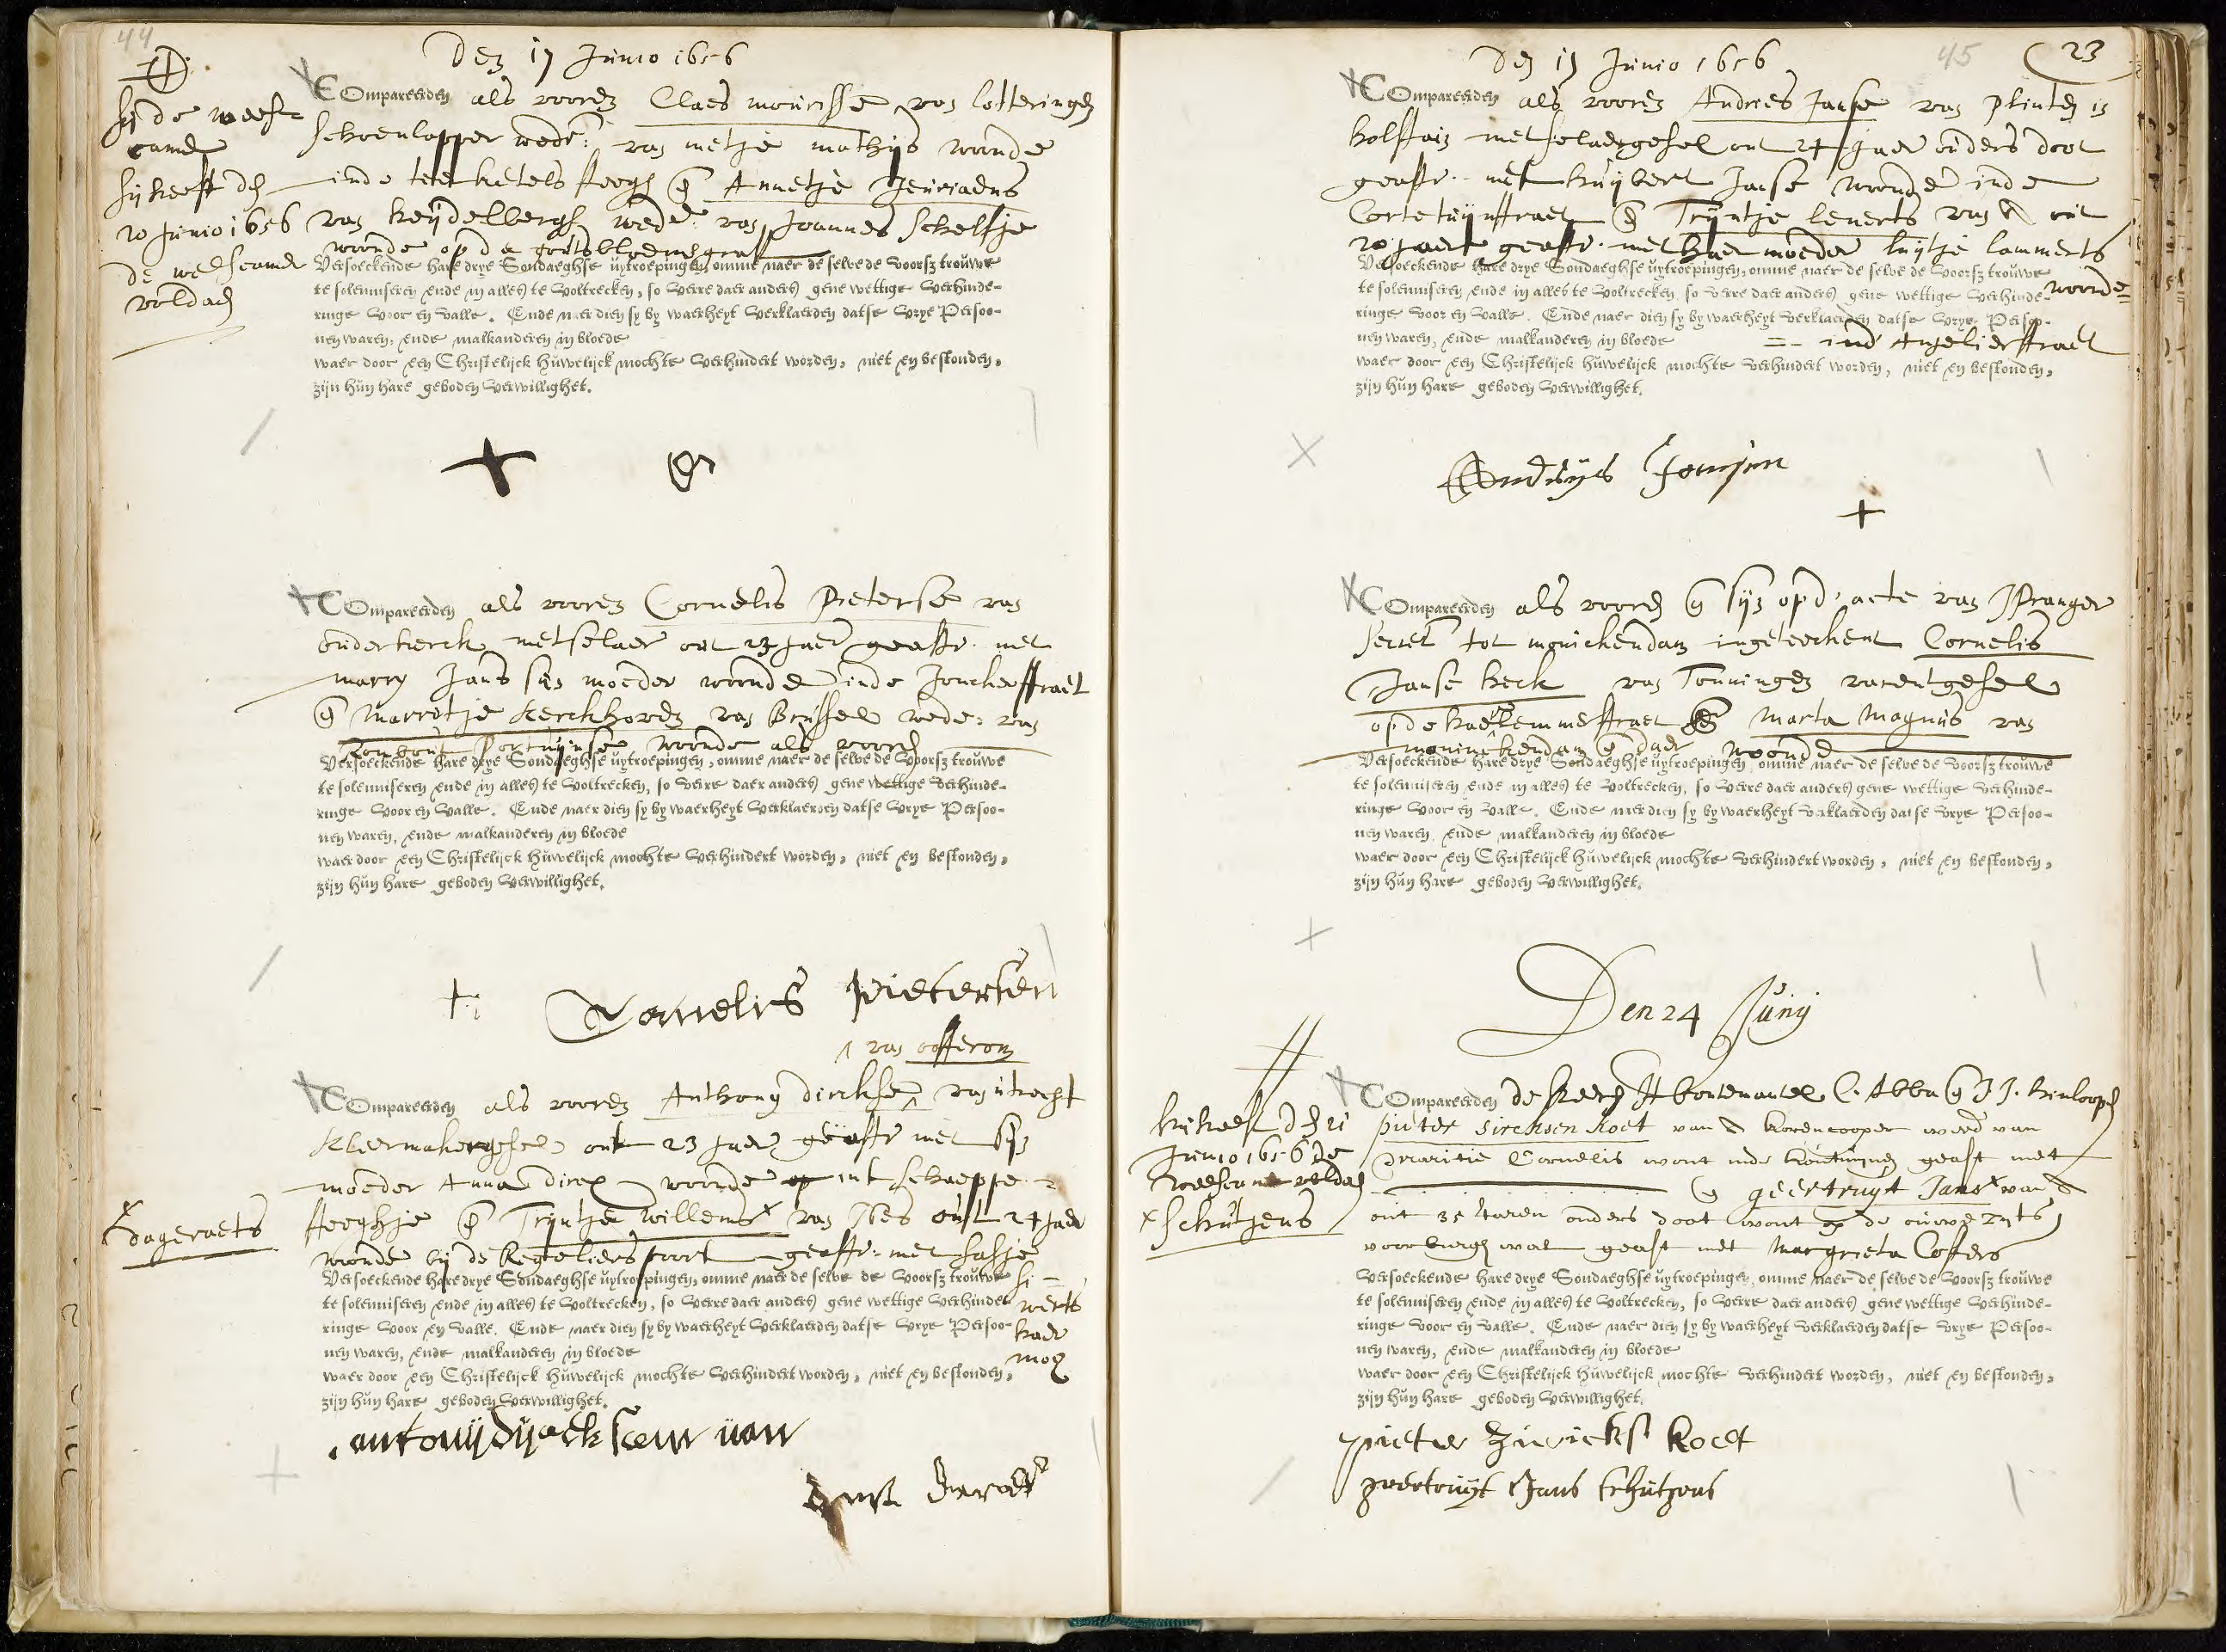 44
Den 17 Junio 1656
sij de weess
camer
hij heeft den
20 Junio 1656
de weescamer
voldaen
Compareerden als vooren Claes mourisse van lotteringen
schoenlapper wedr: van metje mathijs woonde
inde teerketels steegh en Annetje Jeuriaens
van heijdelbergh wede van Joannes Scheltje
woonde op de goutsbloemgraft
Versoeckende hare drye Sondaeghse uytroepingen, omme naer de selve de voorsz trouwe
te solemniseren ende in alles te voltrecken, so verre daer anders gene wettige verhinde-
ringe voor en valle. Ende naer dien sy by waerheyt verklaerden datse vrye Persoo-
nen waren, ende malkanderen in bloede
waer door een Christelijck huwelijck mochte verhindert worden, niet en bestonden,
zijn hun hare geboden verwillighet.
Compareerden als vooren Cornelis Pieterse van
ouderkerck metselaer out 23 Jaer geasst. met
marry Jans sijn moeder woonde inde Jonckerstraet
en Marretje Kerckhoven van Brussel wede: van
woonde als vooren
Versoeckende hare drye Sondaeghse uytroepingen, omme naer de selve de voorsz trouwe
te solemniseren ende in alles te voltrecken, so verre daer anders gene wettige verhinde-
ringe voor en valle. Ende naer dien sy by waerheyt verklaerden datse vrye Persoo-
nen waren, ende malkanderen in bloede
waer door een Christelijck huwelijck mochte verhindert worden, niet en bestonden,
zijn hun hare geboden verwillighet.
Cornelis pietersen
van oosterom
Compareerden als vooren Anthony dirckse van utrecht
kleermakergesel out 23 Jaer geasst met sijn
moeder Anna dircx woonde int schaepse
dageraets
steeghje en Trijntje willems van Nes out 24 Jaer
woonde bij de Reguliers poort geasst: met
werts
haer
moer
Versoeckende hare drye Sondaeghse uytroepingen, omme naer de selve de voorsz trouwe
te solemniseren ende in alles te voltrecken, so verre daer anders gene wettige verhinde-
ringe voor en valle. Ende naer dien sy by waerheyt verklaerden datse vrye Persoo-
nen waren, ende malkanderen in bloede
waer door een Christelijck huwelijck mochte verhindert worden, niet en bestonden,
zijn hun hare geboden verwillighet.
antonij dijrcksen van
45 23
Den 17 Junio 1656
Compareerden als vooren Andries Janse van in
holstein metselaersgesel out 24 Jaer ouders doot
geasst. met huijbert Janse woonde inde
Corte tuijnstraet en Trijntje leuerts van A out
20 Jaer geasst. met haer moeder luijtje lammerts
woonde
ind Angelierstraet
Versoeckende hare drye Sondaeghse uytroepingen, omme naer de selve de voorsz trouwe
te solemniseren ende in alles te voltrecken, so verre daer anders gene wettige verhinde-
ringe voor en valle. Ende naer dien sy by waerheyt verklaerden datse vrye Persoo-
nen waren, ende malkanderen in bloede
waer door een Christelijck huwelijck mochte verhindert worden, niet en bestonden,
zijn hun hare geboden verwillighet.
Andrijs Jansen
Compareerden als vooren en sijn op d' acte van J Pranger
secret tot monickendam ingeteekent Cornelis
Janse keck van Tonningen varentgesel
op de haerlemmerstraet en Marta Magnus van
monickendam en daer woonde
Versoeckende hare drye Sondaeghse uytroepingen, omme naer de selve de voorsz trouwe
te solemniseren ende in alles te voltrecken, so verre daer anders gene wettige verhinde-
ringe voor en valle. Ende naer dien sy by waerheyt verklaerden datse vrye Persoo-
nen waren, ende malkanderen in bloede
waer door een Christelijck huwelijck mochte verhindert worden, niet en bestonden,
zijn hun hare geboden verwillighet.
Den 24 Junij
hij heeft den 21
Junio 1656 de
weescamer voldaen
x Schutjens
Compareerden de Heeren H bontemantel C. Abba en J J. hinloopen
pieter sircksen Koet van A korencooper wedr van
Marritie Cornelis wont inde geast met
en geertruyt Jans van A
out 35 Jaren ouders doot wont op de ouwe zijts
voorburghwal geast met Margrieta Costers
Versoeckende hare drye Sondaeghse uytroepingen, omme naer de selve de voorsz trouwe
te solemniseren ende in alles te voltrecken, so verre daer anders gene wettige verhinde-
ringe voor en valle. Ende naer dien sy by waerheyt verklaerden datse vrye Persoo-
nen waren, ende malkanderen in bloede
waer door een Christelijck huwelijck mochte verhindert worden, niet en bestonden,
zijn hun hare geboden verwillighet.
pieter Zierickss Koet
geertruijt Jans schutjens